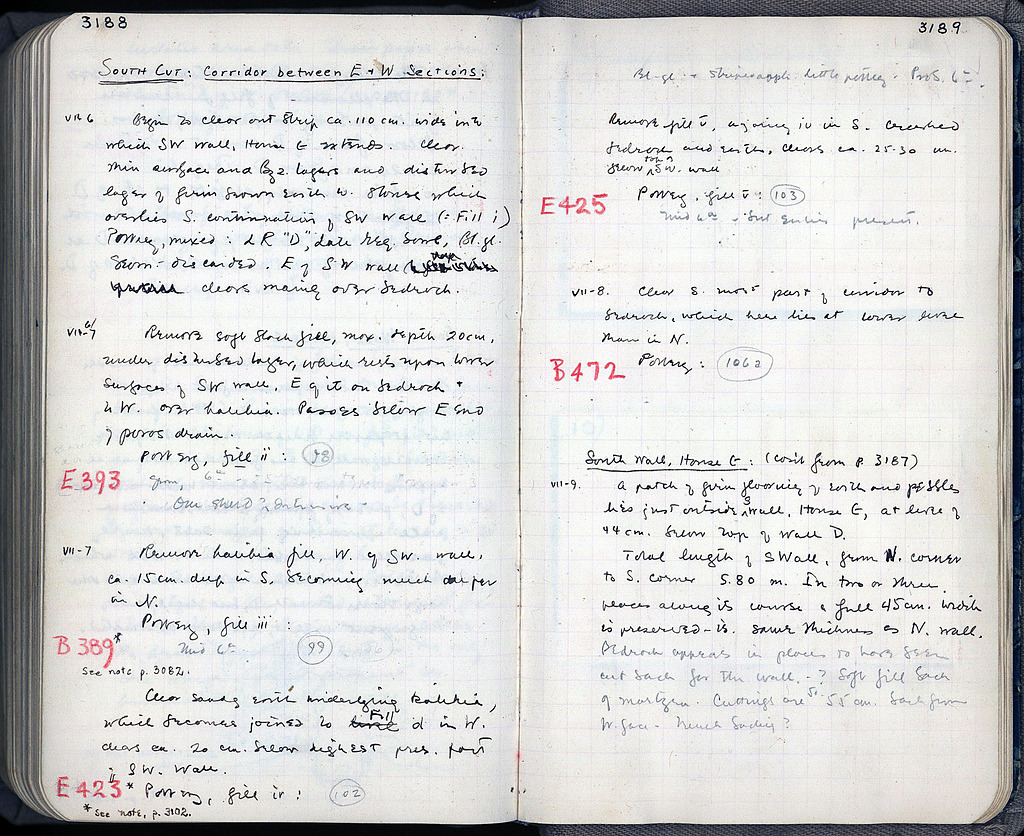 3188
South Cut: Corridor between E + W Sections:
VII-6 Begin to clear out strip ca. 110 cm. wide into
which SW Wall, House G extends. Clear
thin surface and Byz. layers and disturbed
layer of firm brown earth w. stones which
overlies S. continuation of SW Wall (= Fill i)
Pottery, mixed: LR "D", late Hsg. bowl, Bl. gl.
down - discarded. E of SW wall
clears mainly over bedrock.
VII-6/7 Remove soft black fill, max. depth 20 cm,
under disturbed layer, which rests upon lower
surfaces of SW wall, E of it on bedrock +
to W. over kalibia. Passes below E end
of poros drain.
Pottery, fill ii: 98
E 393
6th
One sherd ? intrusive
VII-7 Remove kalibia fill, W. of SW. wall,
ca. 15 cm. deep in S. becoming much deeper
in N.
Pottery, fill iii:
B 389* Mid 6th 99
See note p. 3082.
Clear sandy earth underlying kalibia,
which becomes joined to Fill d in W.
clears ca. 20 cm. below highest pres. part
of SW. Wall.
E 423* Pottery, fill iv: 102
* See note, p. 3102.
3189
Bl. gl. + little pottery - Prob. 6th.
Remove fill v, adjoining iv in S. crushed
bedrock and earth, clears ca. 25-30 cm.
below top of SW. wall
E 425 Pottery, fill v: 103
Mid 6th present.
VII-8. Clear S. most part of corridor to
bedrock, which here lies at lower level
than in N.
B 472 Pottery: 106a
South Wall, House G: (con't from p. 3187)
VII-9. A patch of firm flooring of earth and pebbles
lies just outside S wall, House G, at level of
44 cm. below top of Wall D.
Total length of S Wall, from N. corner
to S. corner 5.80 m. In two or three
places along its course a full 45 cm. width
is preserved - i.e. same thickness as N. wall.
Bedrock appears in places to have been
cut back for the wall, - ? Soft fill back
of Cuttings are 50-55 cm. back from
W. face -